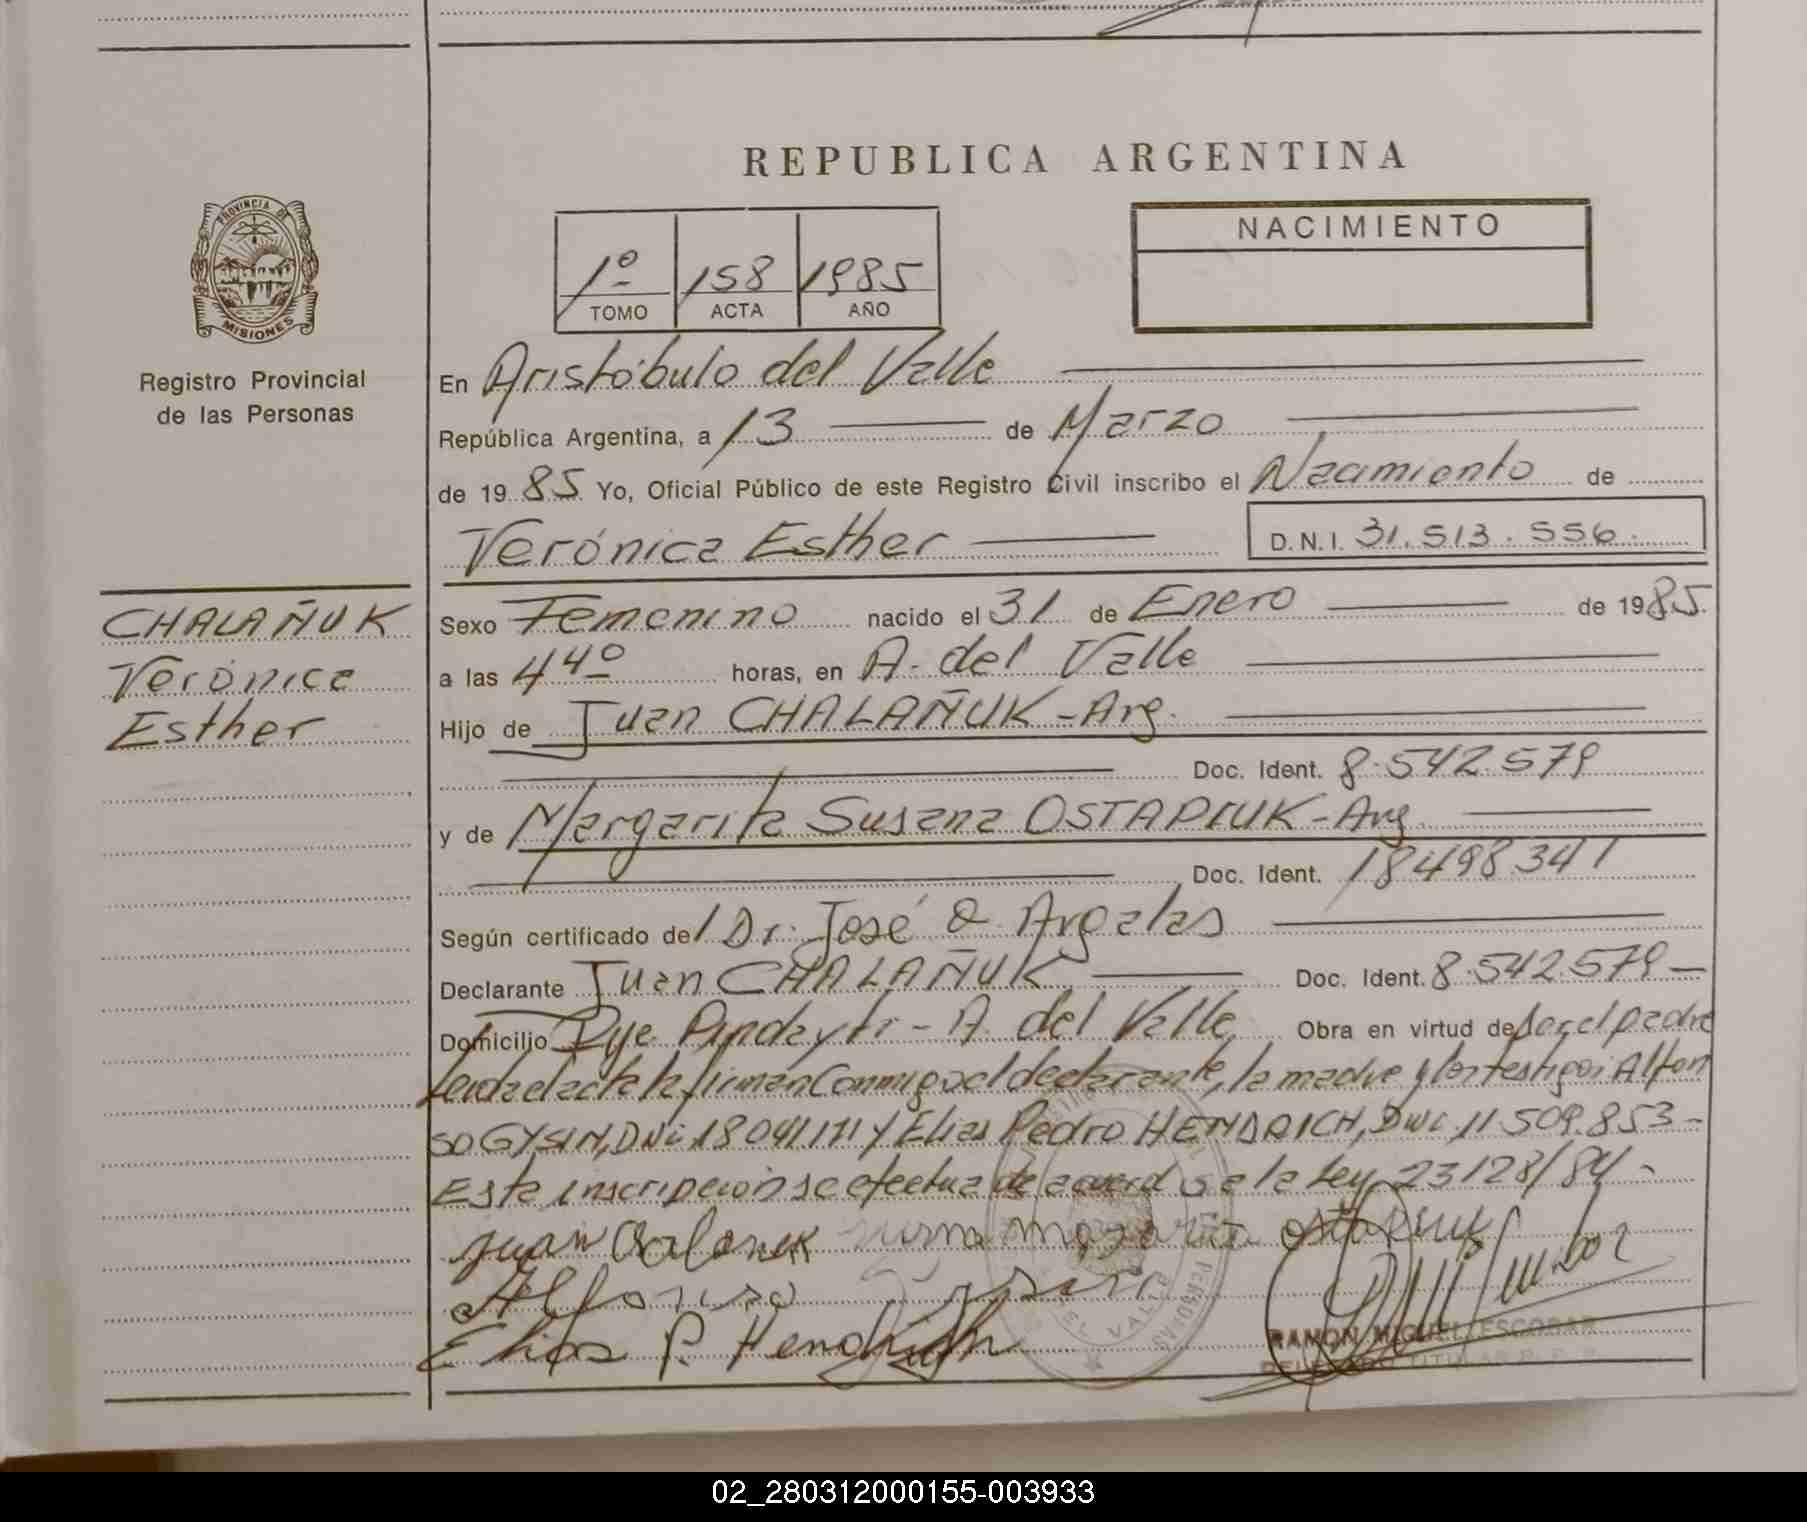 REPUBLICA ARGENTINA
PROVINCIA DE
MISIONES
Registro Provincial
de las Personas
1º 158 1985
TOMO ACTA AÑO
NACIMIENTO
En Aristóbulo del Valle
República Argentina, a 13 de Marzo
de 1985 Yo, Oficial Público de este Registro Civil inscribo el Nacimiento de
Verónica Esther D.N.I. 31.513.556.
CHALAÑUK
Verónica
Esther
Sexo Femenino nacido el 31 de Enero de 1985.
a las 4 4º horas, en A. del Valle
Hijo de Juan CHALAÑUK - Arg.
Doc. Ident. 8.542.579
y de Margarita Susana OSTAPIUK - Arg
Doc. Ident. 18498341
Según certificado del Dr. José O. Argalas
Declarante Juan CHALAÑUK Doc. Ident. 8.542.579 —
Domicilio Pje. Pindayti - A. del Valle Obra en virtud de ser el padre
leida el acta la firman conmigo el declarante, la madre y los testigos Alfon
so GYSIN, DNi 18041171 y Elias Pedro HENDRICH, DNi 11.509.853 -
Esta inscripción se efectua de acuerdo a la Ley 23128/84 -
Juan Chalanuk margarita ostapiuk
Alfonso Gysin
Elias P. Hendrich
EL VALLE
PERSONAS
RAMON MIGUEL ESCOBAR
DELEGADO TITULAR R. P. P.
02_280312000155-003933